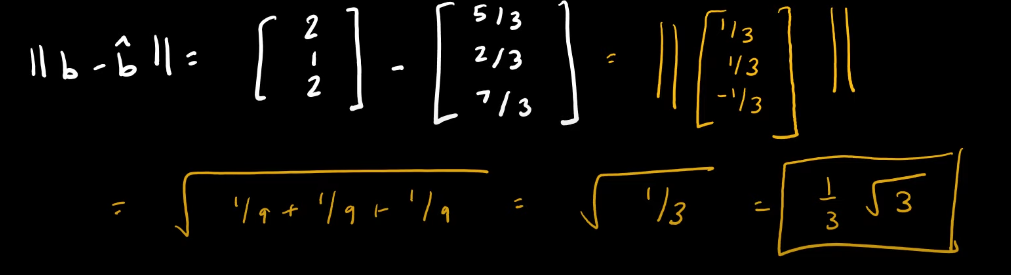 ‖ b - b̂ ‖ = [2 1 2] - [5/3 2/3 7/3] = ‖ [1/3 1/3 -1/3] ‖
= √(1/9 + 1/9 + 1/9) = √(1/3) = 1/3 √3